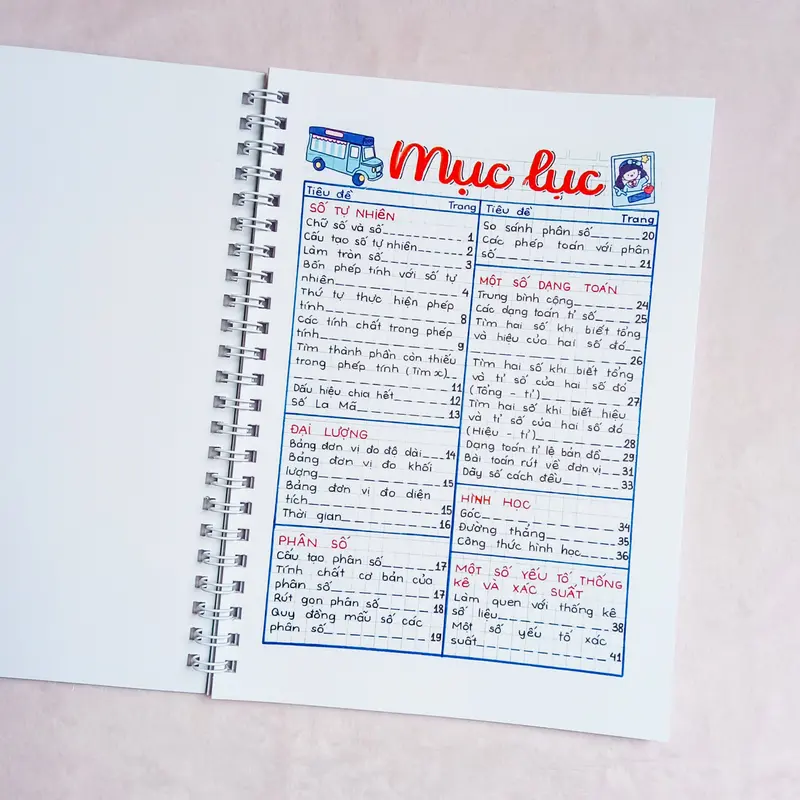 Mục lục
Tiêu đề Trang
SỐ TỰ NHIÊN
Chữ số và số 1
Cấu tạo số tự nhiên 2
Làm tròn số 3
Bốn phép tính với số tự
nhiên 4
Thứ tự thực hiện phép
tính 8
Các tính chất trong phép
tính 9
Tìm thành phần còn thiếu
trong phép tính (Tìm x)
11
Dấu hiệu chia hết 12
Số La Mã 13
ĐẠI LƯỢNG
Bảng đơn vị đo độ dài 14
Bảng đơn vị đo khối
lượng 15
Bảng đơn vị đo diện
tích 15
Thời gian 16
PHÂN SỐ
Cấu tạo phân số 17
Tính chất cơ bản của
phân số 17
Rút gọn phân số 18
Quy đồng mẫu số các
phân số 19
Tiêu đề Trang
So sánh phân số 20
Các phép toán với phân
số 21
MỘT SỐ DẠNG TOÁN
Trung bình cộng 24
Các dạng toán tỉ số 25
Tìm hai số khi biết tổng
và hiệu của hai số đó
26
Tìm hai số khi biết tổng
và tỉ số của hai số đó
(Tổng - tỉ) 27
Tìm hai số khi biết hiệu
và tỉ số của hai số đó
(Hiệu - tỉ) 28
Dạng toán tỉ lệ bản đồ 29
Bài toán rút về đơn vị 31
Dãy số cách đều 33
HÌNH HỌC
Góc 34
Đường thẳng 35
Công thức hình học 36
MỘT SỐ YẾU TỐ THỐNG
KÊ VÀ XÁC SUẤT
Làm quen với thống kê
số liệu 38
Một số yếu tố xác
suất 41